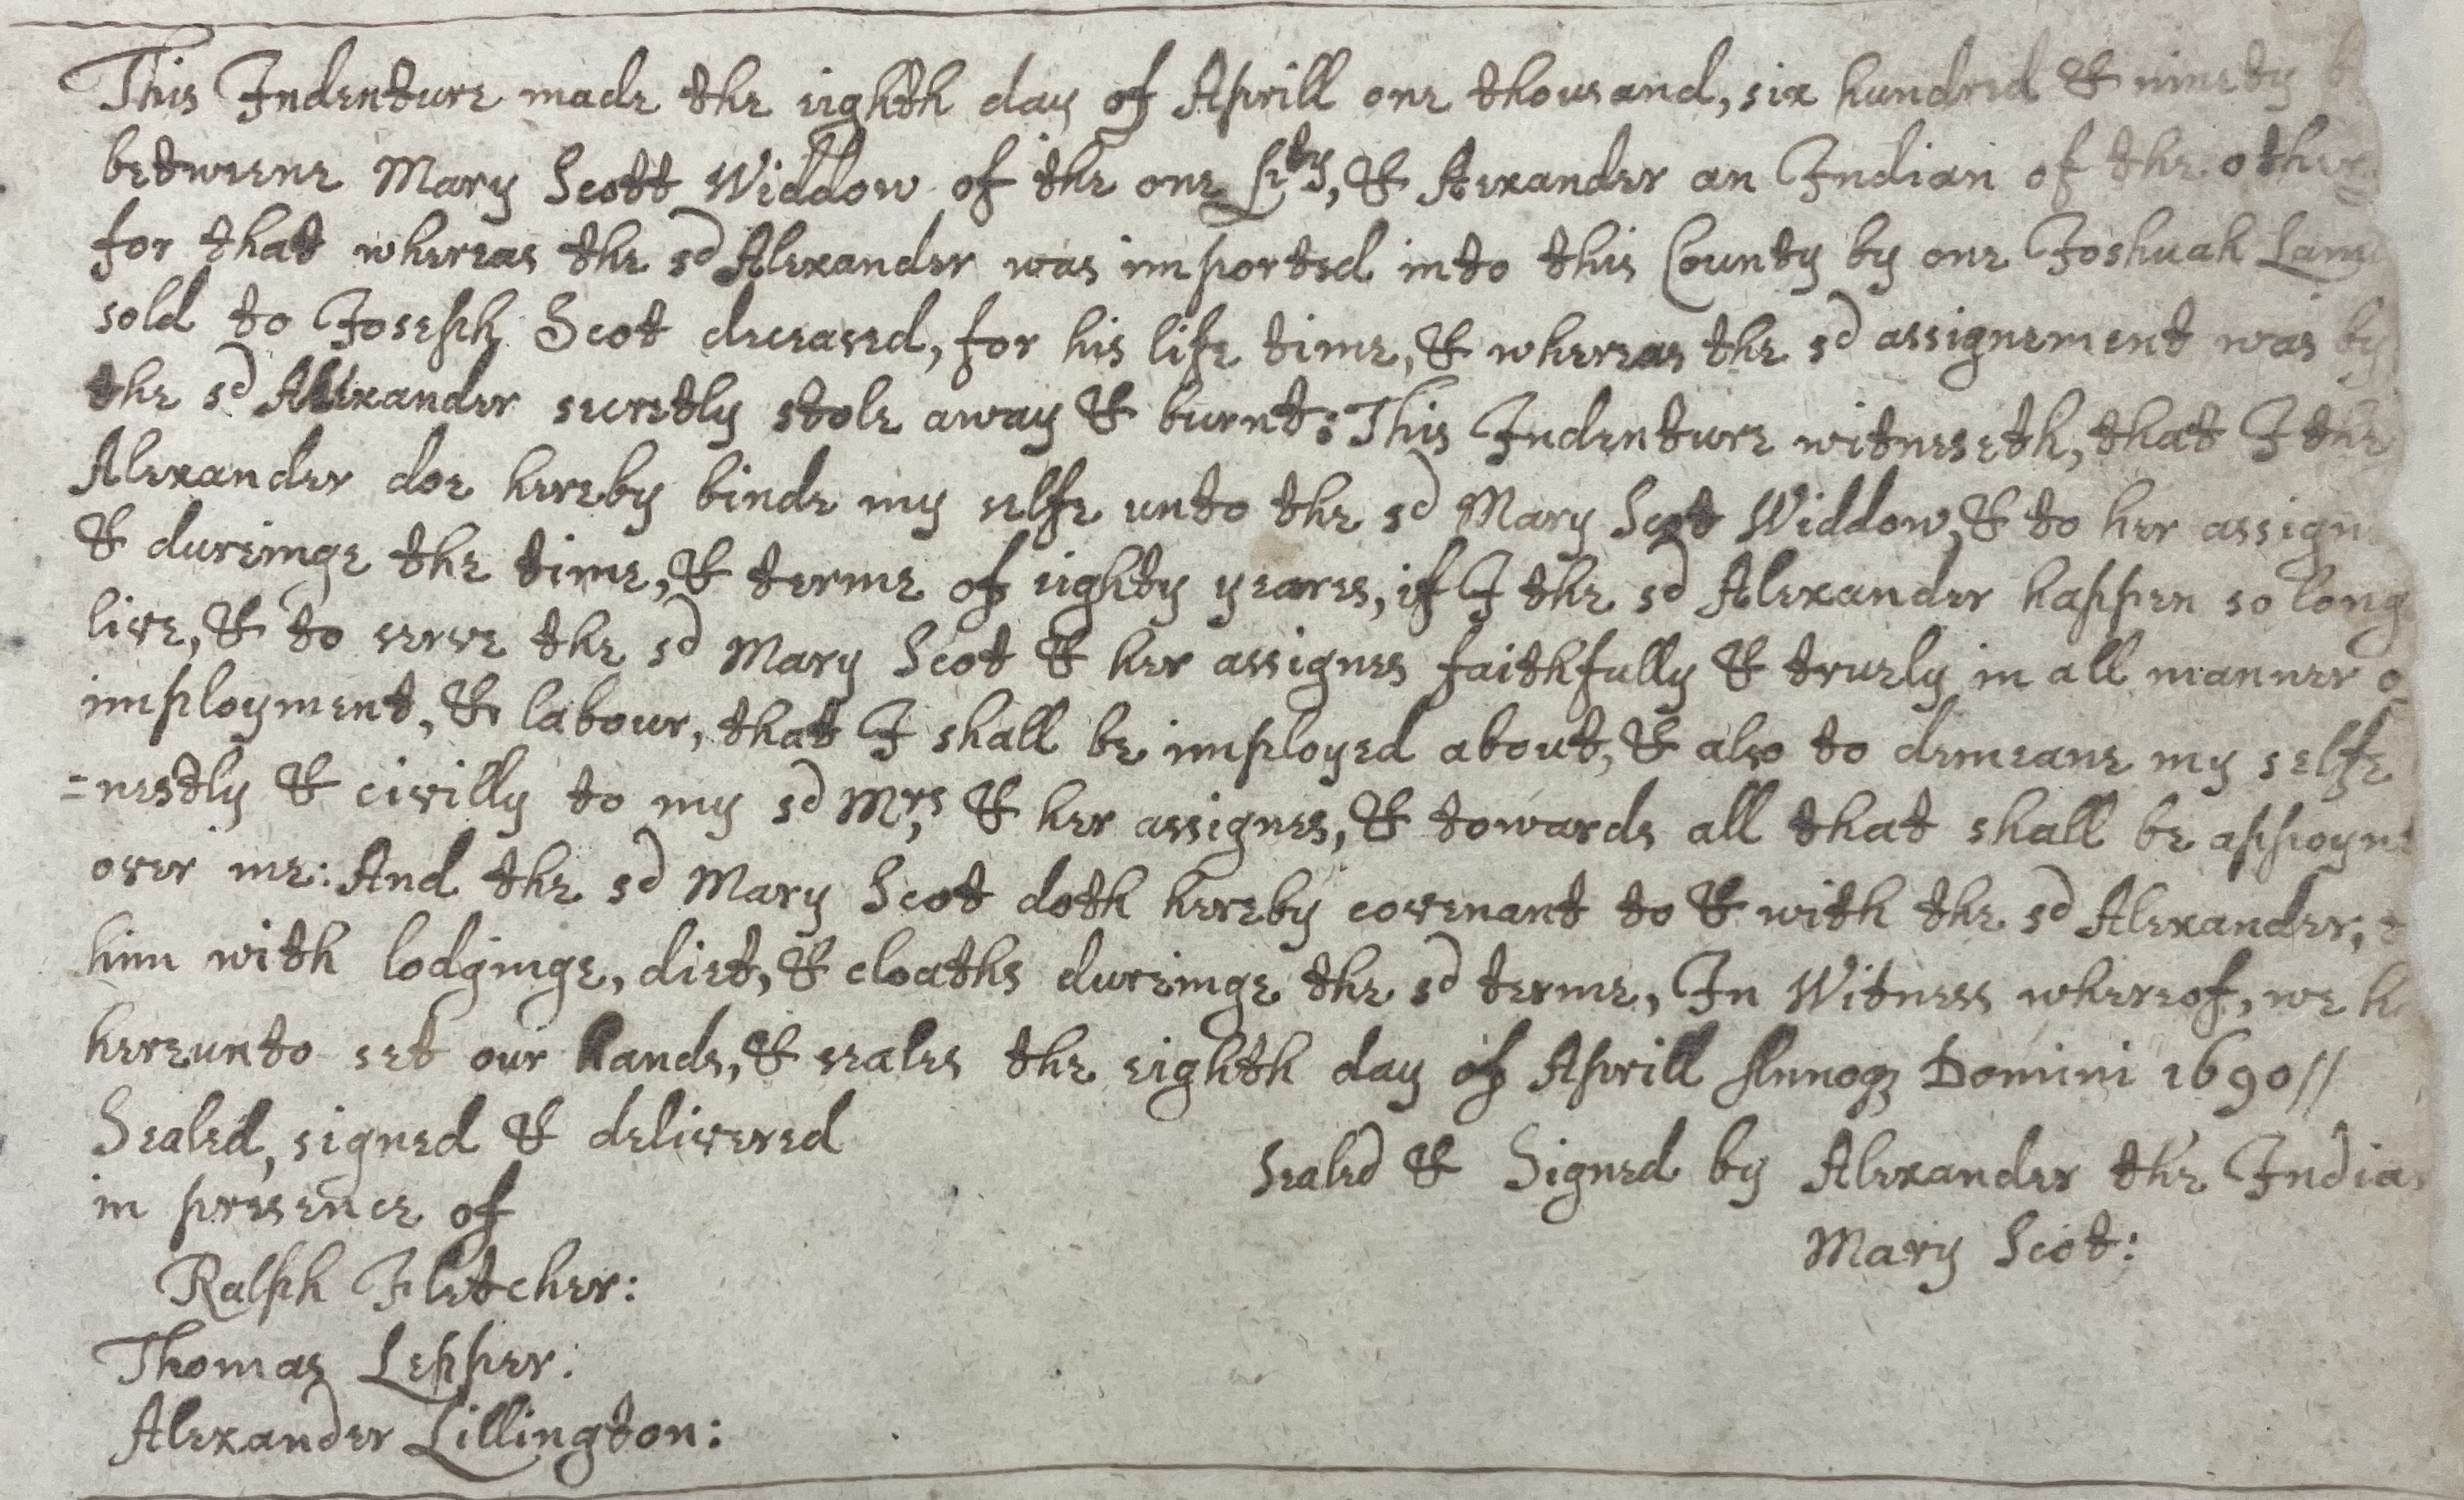 This Indenture made the eighth day of Aprill one thousand, six hundred & ninety
betweene Mary Scott Widdow of the one pty, & Alexander an Indian of the other
for that whereas the sd Alexander was imported into this County by one Joshuah Lam
sold to Joseph Scot deceased, for his life time, & whereas the sd assignement was by
the sd Alexander secretly stole away & burnt: This Indenture witneseth, that I the
Alexander doe hereby binde my selfe unto the sd Mary Scot Widdow, & to her assign
& dureinge the time, & terme of eighty yeares, if I the sd Alexander happen so long
live, & to serve the sd Mary Scot & her assignes faithfully & truely in all manner o
imployment, & labour, that I shall be imployed about, & also to demeane my selfe
=nestly & civilly to my sd Mrs, & her assignes, & towards all that shall be appoynt
over me: And the sd Mary Scot doth hereby covenant to & with the sd Alexander,
him with lodginge, diet, & cloaths dureinge the sd terme, In Witness whereof, we h
hereunto set our hands, & seales the eighth day of Aprill Annoq Domini 1690//
Sealed, signed & delivered
in presence of
Sealed & Signed by Alexander the India
Mary Scot:
Ralph Fletcher:
Thomas Lepper:
Alexander Lillington: